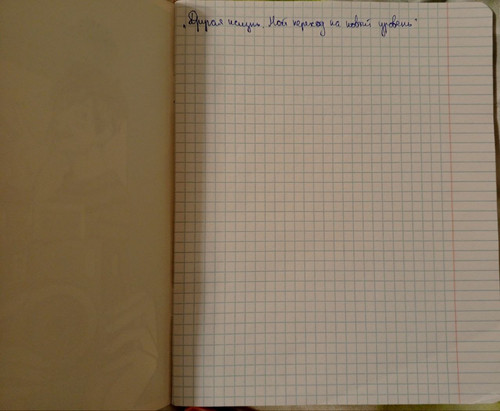 „Другая жизнь. Мой переход на новый уровень"